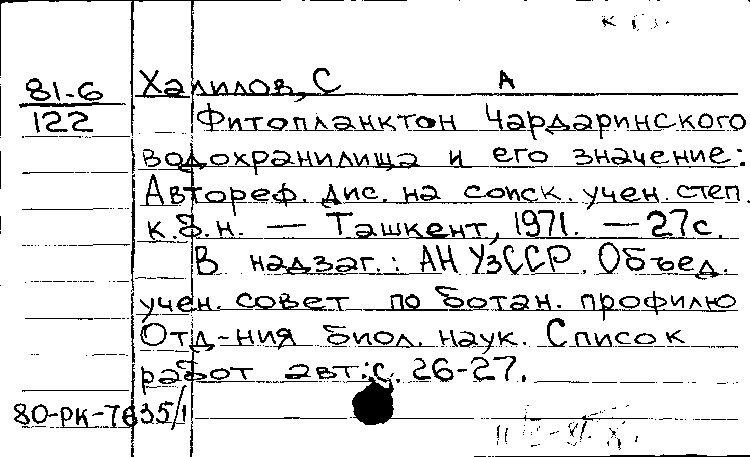 81-6
122
Халилов, С
А
Фитопланктон Чардаринского
водохранилища и его значение:
Автореф. дис. на соиск. учен. степ.
к.б.н. — Ташкент, 1971. — 27с.
В надзаг.: АН УзССР. Объед.
учен. совет по ботан. профилю
Отд-ния биол. наук. Список
работ авт.: с. 26-27.
80-РК-7635/1